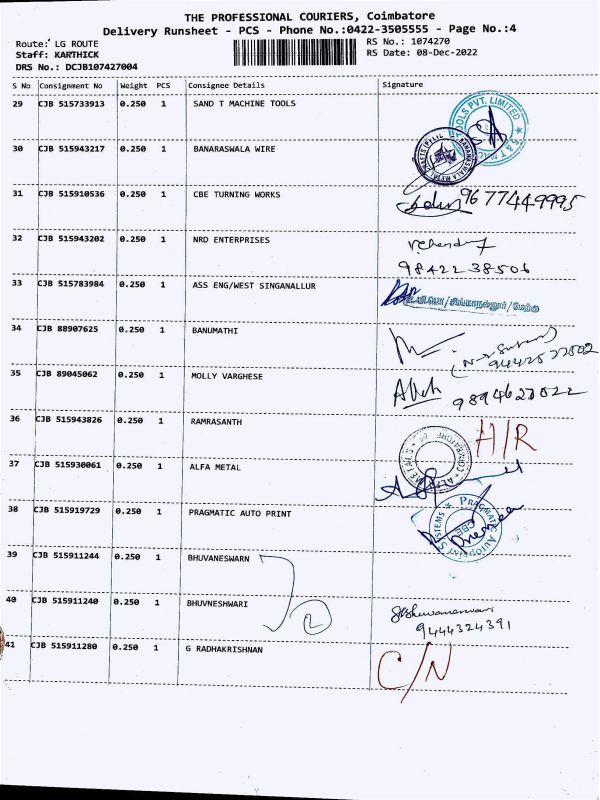 THE PROFESSIONAL COURIERS, Coimbatore
Delivery Runsheet - PCS - Phone No.:0422-3505555 - Page No.:4
Route: LG ROUTE
RS No.: 1074270
Staff: KARTHICK
RS Date: 08-Dec-2022
DRS No.: DCJB107427004
S No Consignment No Weight PCS Consignee Details Signature
29 CJB 515733913 0.250 1 SAND T MACHINE TOOLS
30 CJB 515943217 0.250 1 BANARASWALA WIRE
31 CJB 515910536 0.250 1 CBE TURNING WORKS 9677449995
32 CJB 515943202 0.250 1 NRD ENTERPRISES
9842238506
33 CJB 515783984 0.250 1 ASS ENG/WEST SINGANALLUR
34 CJB 88907625 0.250 1 BANUMATHI
35 CJB 89045062 0.250 1 MOLLY VARGHESE
9894627022
36 CJB 515943826 0.250 1 RAMRSANTH H/R
37 CJB 515930061 0.250 1 ALFA METAL
38 CJB 515919729 0.250 1 PRAGMATIC AUTO PRINT
PRAGMATIC AUTOPRINT SYSTEMS
CBE
39 CJB 515911244 0.250 1 BHUVANESWARN
40 CJB 515911240 0.250 1 BHUVNESHWARI
2
9444324391
41 CJB 515911280 0.250 1 G RADHAKRISHNAN C/N